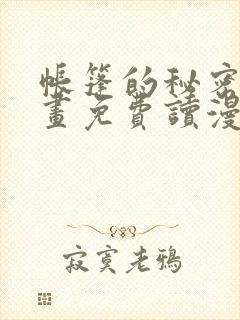 帳篷的秘密
畫免費讀漫
寂寞老鴉